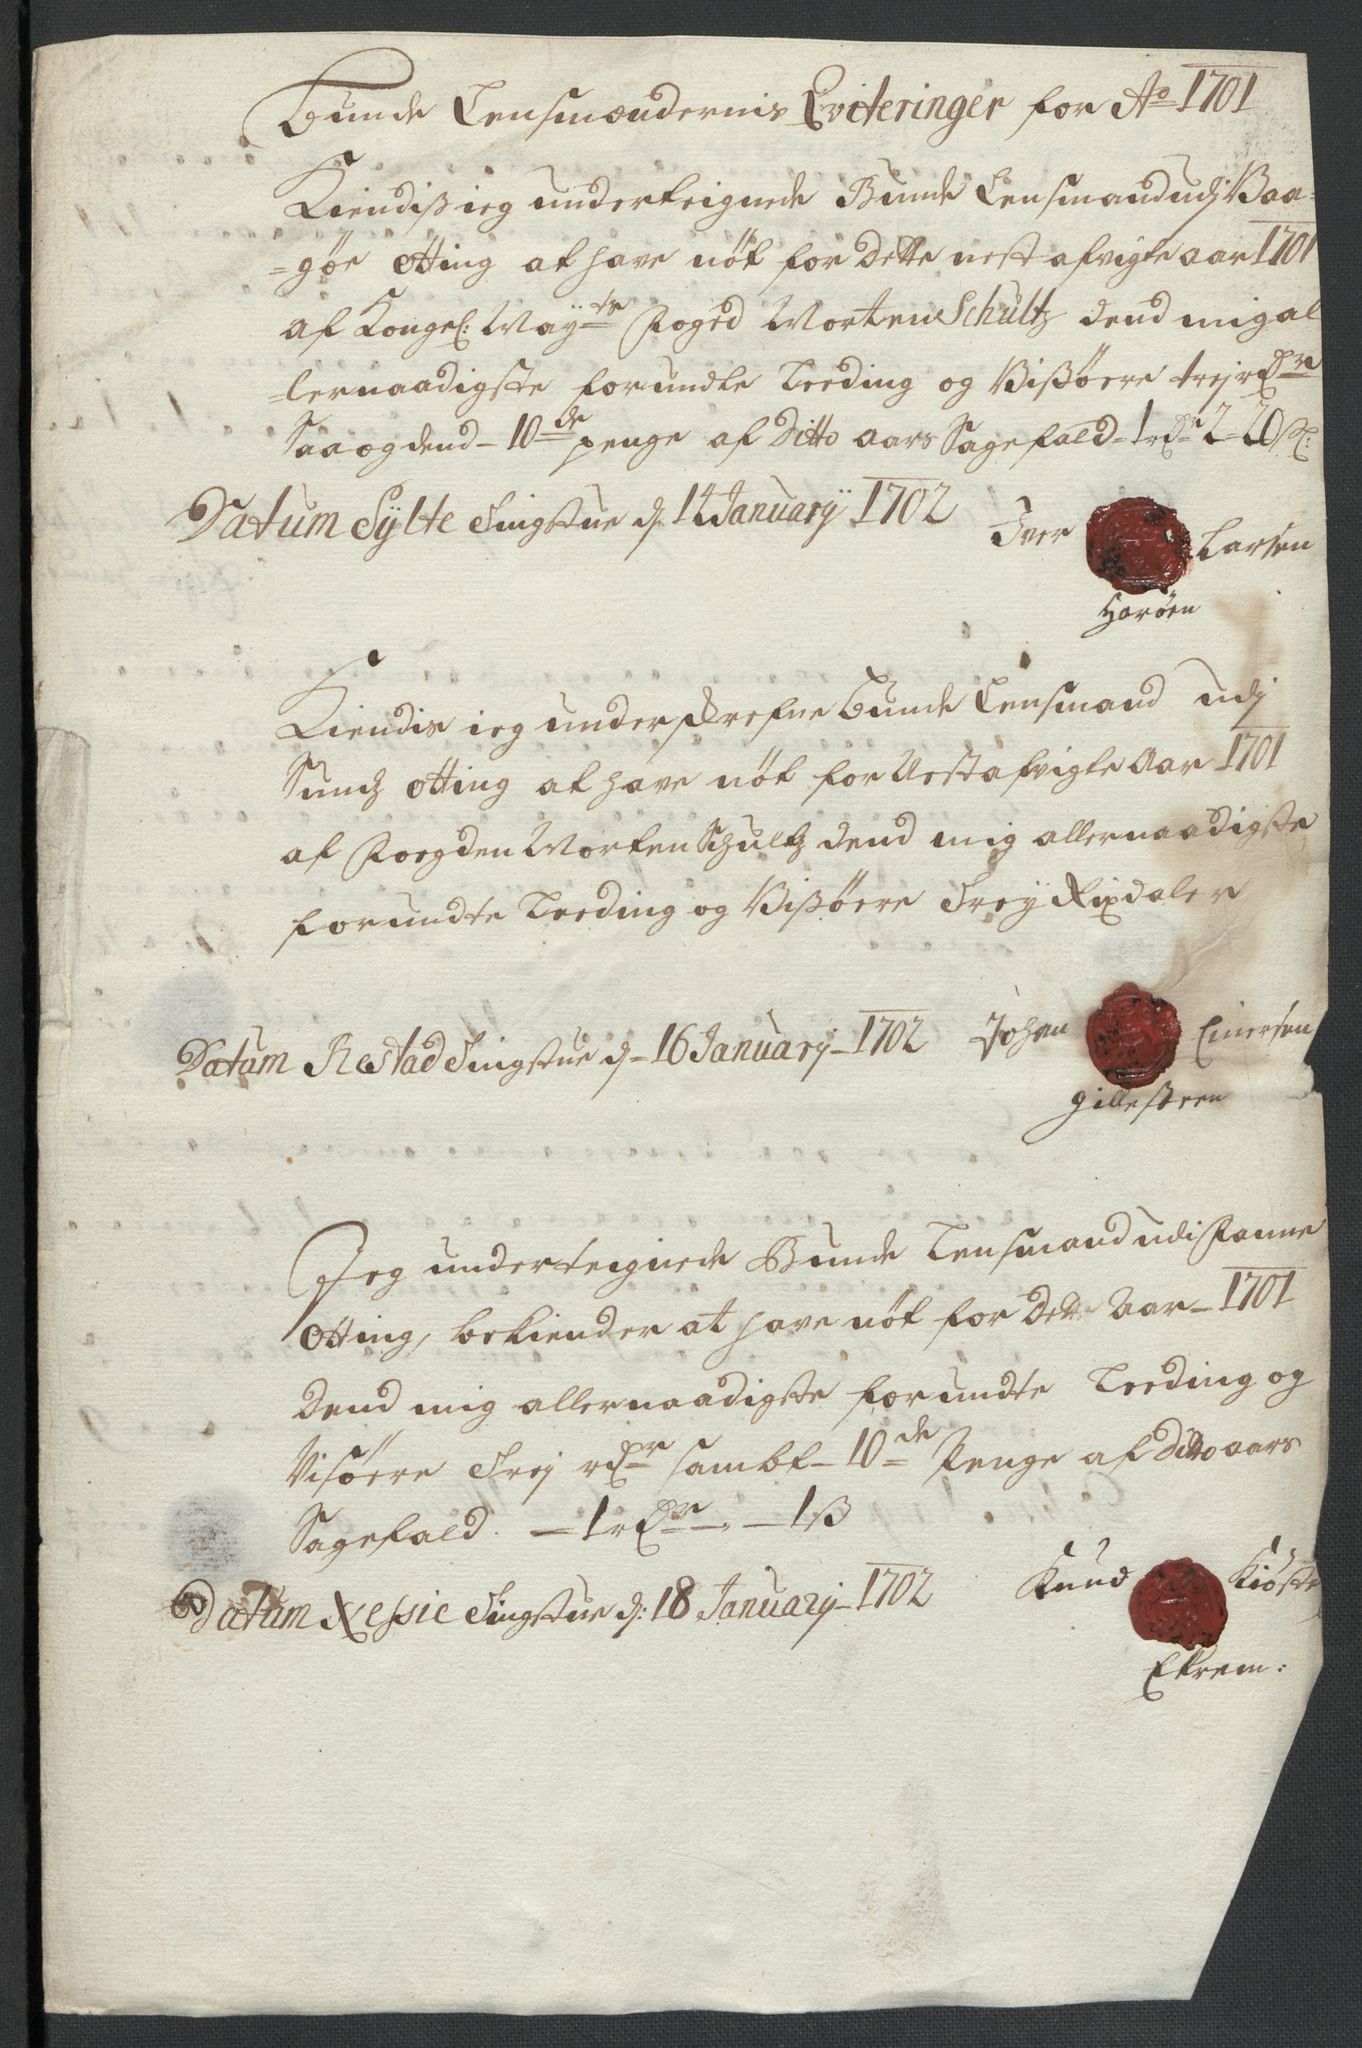 Bunde Lensmændernis Qviteringer for Ao 1701
Kiendiß ieg underteignede Bunde Lensmand udj Vaa-
=göe otting at have nöt for dette nest afvigte aar 1701
af Kongel: Mayts Foged Morten Schultz dend mig al
=lernaadigste forundte Leeding og Vißöere trej rdr
Saa og dend - 10de penge af ditto aars Sagefald - 1 rdr 2 - 20 ß:
Datum Sylte Tingstue d. 14 January 1702
Iver Larsen
Haröen
Kiendis ieg underskrefne Bunde Lensmand udj
Sundz otting at have nöt for Nest afvigte Aar 1701
af Fogden Morten Schultz dend mig allernaadigste
forundte Leeding og Vißöere Trey Rixdaler
Datum Restad Tingstue d - 16 January - 1702
Johan Einersen
Gillesteen
Jeg underteignede Bunde Lensmand udi Fanne
Otting, bekiender at have nöt for dette Aar - 1701
Dend mig allernaadigste forundte Leeding og
Visöere Trej rdr sambt - 10de Penge af ditto aars
Sagefald. - 1 rdr - 1 ß
Datum Nessie Tingstue d: 18 January - 1702
Knud
Ekrem: